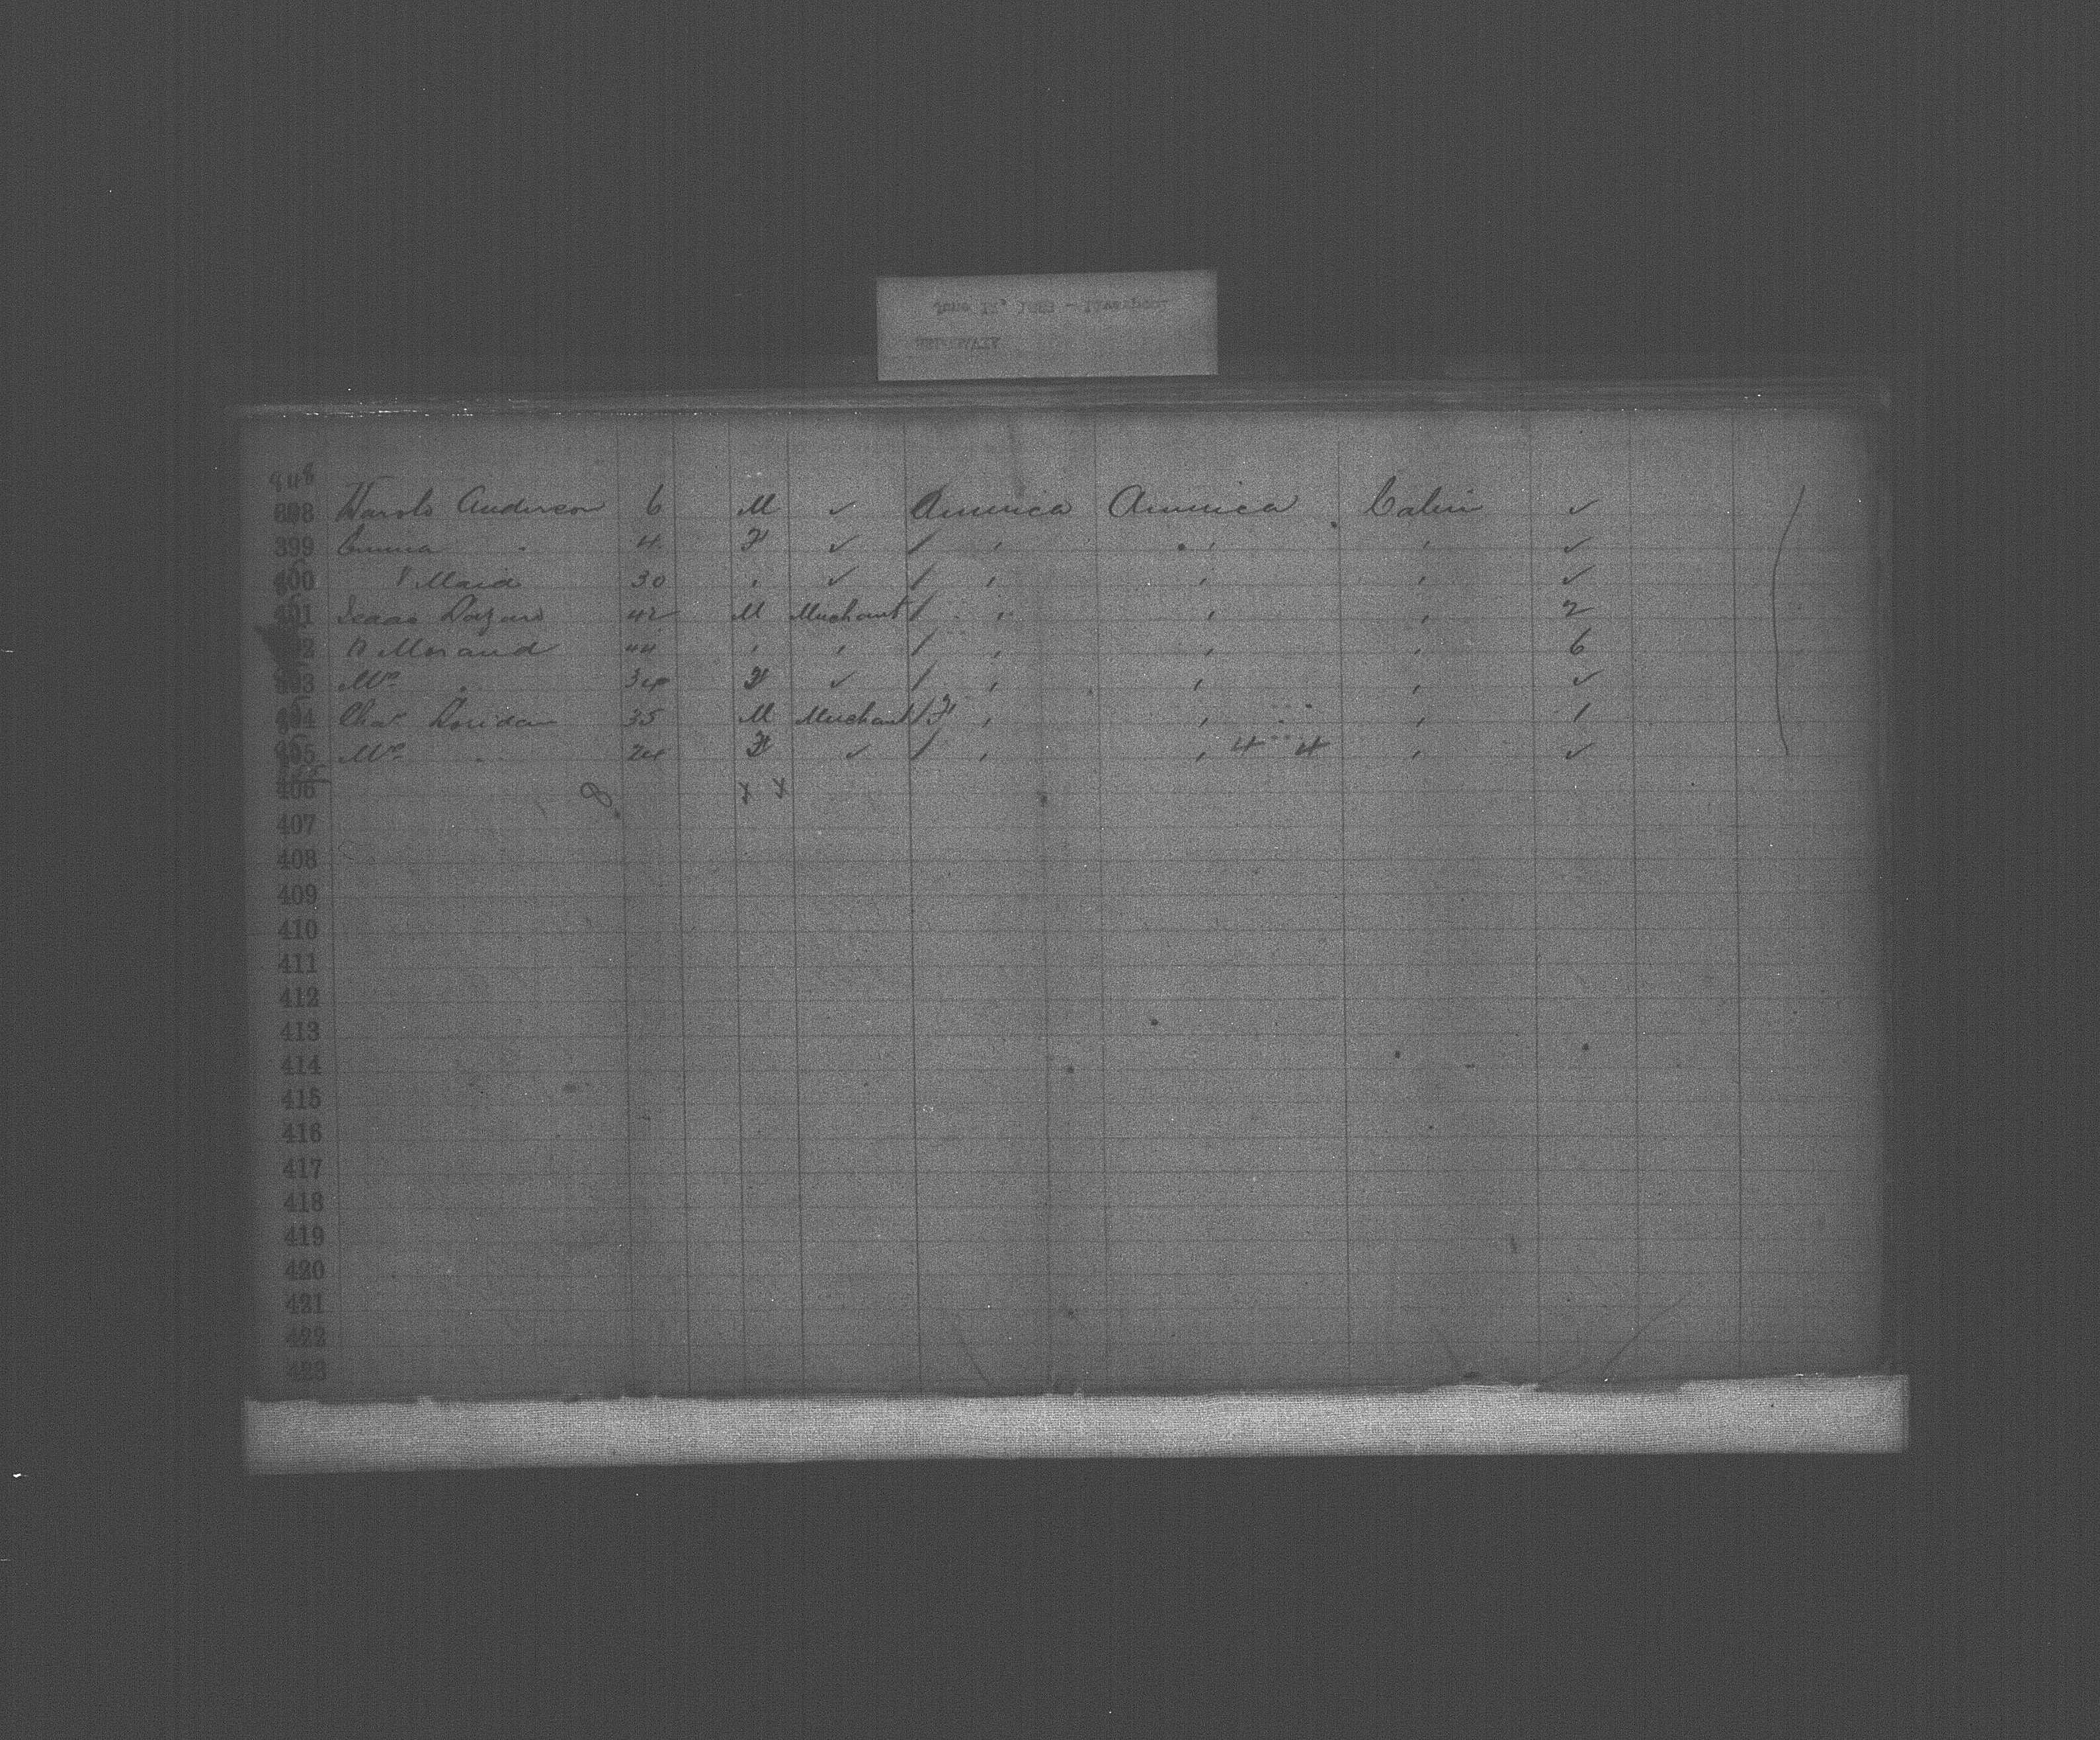 June 12, 1883 - Liverpool
398 Harold Anderson 6 M ✓ America America Cabin ✓
399 Emma " 4 F ✓ / " " " ✓
400 & Maid 30 " ✓ / " " " ✓
401 Isaac 42 M Merchant / " " " 2
Morand 44 " " / " " " 6
403 Mrs " 34 F ✓ / " " " ✓
404 Chas 35 M Merchant / " " " 1
405 Mrs " 24 F ✓ / " " 4 4 " ✓
406 8
407
408
409
410
411
412
413
414
415
416
417
418
419
420
421
422
423